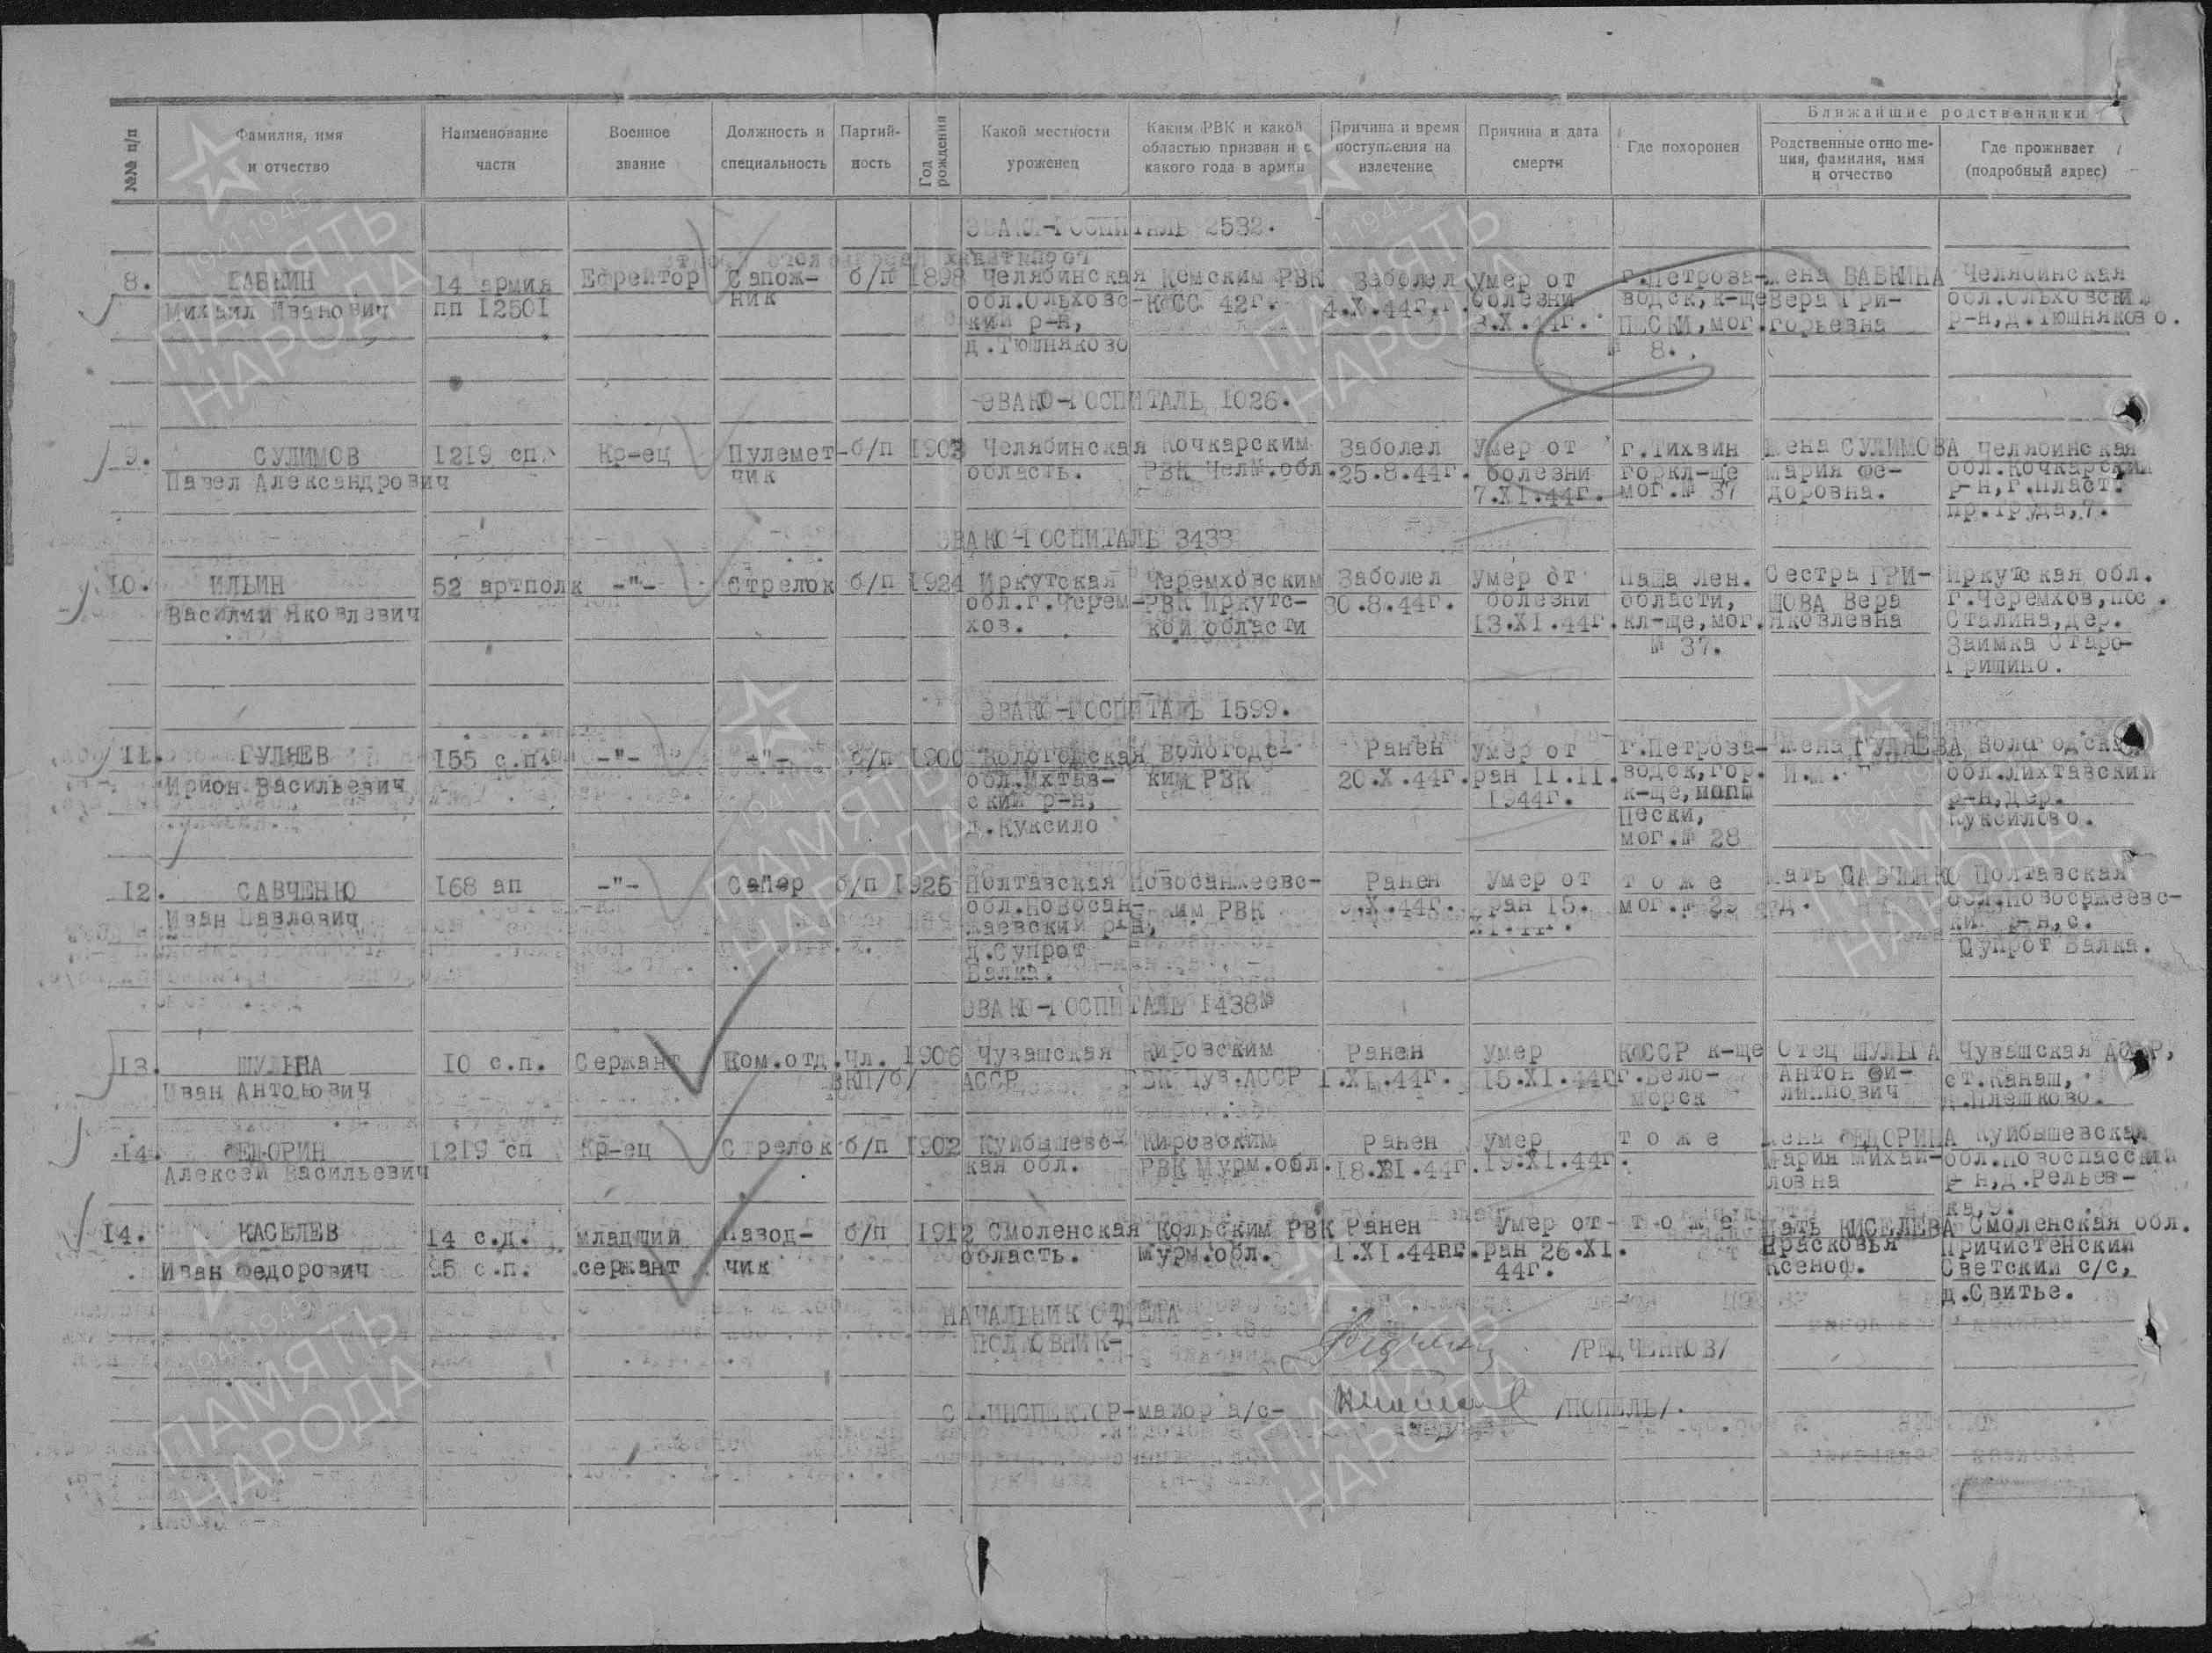 №№ п/п
Фамилия, имя и отчество
Наименование части
Военное звание
Должность и специальность
Партий-ность
Год рождения
Какой местности уроженец
Каким РВК и какой областью призван и с какого года в армии
Причина и время поступления на излечение
Причина и дата смерти
Где похоронен
Ближайшие родственники
Родственные отноше-ния, фамилия, имя и отчество
Где проживает (подробный адрес)
ЭВАКО-ГОСПИТАЛЬ 2532.
8. БАБКИН 14 армия Ефрейтор Сапож- б/п 1898 Челябинская Кемским РВК Заболел Умер от г.Петроза- жена БАБКИНА Челябинская
Михаил Иванович пп 12501 ник обл.Ольховс- КФСС 42г. 4.X.44г. болезни водск, к-ще Вера Гри- обл.Ольховский
кий р-н, 8.X.44г. ПЕСКИ, мог. горьевна р-н, д.Тюшняково.
д.Тюшняково № 8.
ЭВАКО-ГОСПИТАЛЬ 1026.
9. СУЛИМОВ 1219 сп. Кр-ец Пулемет- б/п 1903 Челябинская Кочкарским Заболел Умер от г.Тихвин жена СУЛИМОВА Челябинская
Павел Александрович чик область. РВК Челяб.обл. 25.8.44г. болезни горкл-ще Мария Фе- обл.Кочкарский
7.XI.44г. мог.№ 37 доровна. р-н, г.Пласт.
пр.Труда, 7.
ЭВАКО-ГОСПИТАЛЬ 3433
10. ИЛЬИН 52 артполк -"- Стрелок б/п 1924 Иркутская Черемховским Заболел Умер от Паша Лен. Сестра ГРИ- Иркутская обл.
Василий Яковлевич обл.г.Черем- РВК Иркутс- 30.8.44г. болезни области, ШОВА Вера г.Черемхов, пос.
хов. кой области 13.XI.44г. кл-ще, мог. Яковлевна Сталина, дер.
№ 37. Заимка Старо-
Гришино.
ЭВАКО-ГОСПИТАЛЬ 1599.
11. ГУЛЯЕВ 155 с.п. -"- -"- б/п 1900 Вологодская Вологодс- Ранен Умер от г.Петроза- жена ГУЛЯЕВА Вологодская
Ирион Васильевич обл.Ихтав- ким РВК 20.X.44г. ран 11.11. водск, гор. обл.Лихтавский
ский р-н, 1944г. к-ще, р-н, дер.
д.Куксило Пески, Куксилово.
мог.№ 28
12. САВЧЕНКО 168 ап -"- Сапер б/п 1926 Полтавская Новосанжеевс- Ранен Умер от тоже мать САВЧЕНКО Полтавская
Иван Павлович обл.Новосан- ким РВК 9.X.44г. ран 15. мог.№ 29 обл.Новосжеевс-
жаевский р-н, XI.44г. кий р-н, с.
д.Супрот Супрот Балка.
Балка.
ЭВАКО-ГОСПИТАЛЬ 1438
13. ШУЛЬГА 10 с.п. Сержант Ком.отд. Чл. 1906 Чувашская Кировским Ранен Умер КФССР к-ще Отец ШУЛЬГА Чувашская АССР,
Иван Антонович ВКП/б/ АССР РВК Чув.АССР 1.XI.44г. 15.XI.44г. г.Бело- Антон Фи- ст.Канаш,
морск липпович д.Плешково.
14. ФЕДОРИН 1219 сп Кр-ец Стрелок б/п 1902 Куйбышевс- Кировским Ранен Умер тоже жена ФЕДОРИНА Куйбышевская
Алексей Васильевич кая обл. РВК Мурм.обл. 18.XI.44г. 19.XI.44г. Мария Михай- обл.Новоспасский
ловна р-н, д.Рельев-
ка, 9.
14. КАСЕЛЕВ 14 с.д. младший Навод- б/п 1912 Смоленская Кольским РВК Ранен Умер от тоже Мать КИСЕЛЕВА Смоленская обл.
Иван Федорович 95 с.п. сержант чик область. Мурм.обл. 1.XI.44г. ран 26.XI. Прасковья Причистенский
44г. Ксеноф. Светский с/с,
д.Свитье.
НАЧАЛЬНИК ОТДЕЛА
ПОЛКОВНИК- /РЕДЧЕНКОВ/
СТ.ИНСПЕКТОР-майор а/с- /ПОПЕЛЬ/.
1941-1945
ПАМЯТЬ
НАРОДА